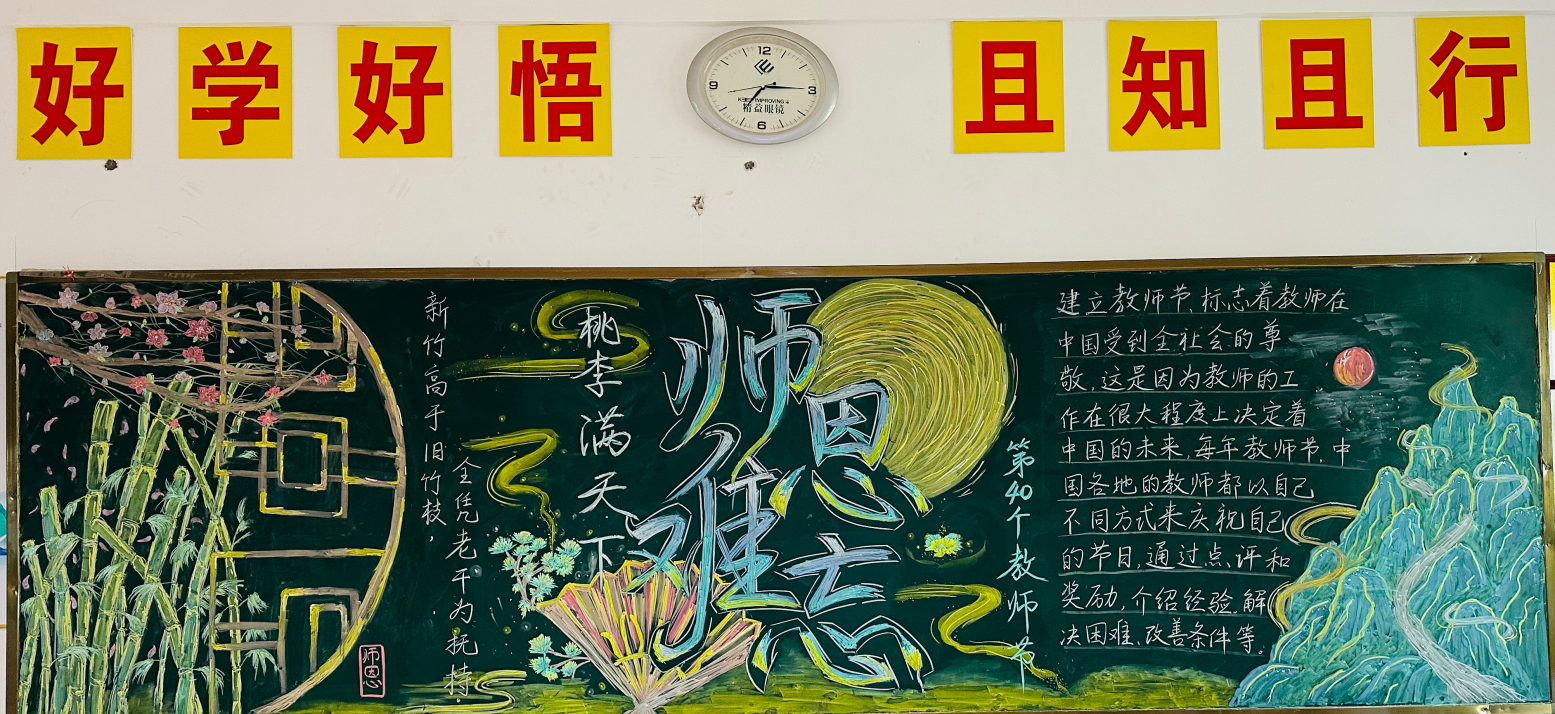 好学好悟
12
9
3
KEEP IMPROVING
精益眼镜
6
且知且行
新竹高于旧竹枝，
全凭老干为扶持.
师恩
桃李满天下
师恩难忘
第40个教师节
建立教师节、标志着教师在
中国受到全社会的尊
敬，这是因为教师的工
作在很大程度上决定着
中国的未来，每年教师节，中
国各地的教师都以自己
不同方式来庆祝自己
的节目，通过点评和
奖励，介绍经验，解
决困难、改善条件等。